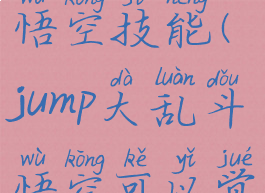 wù kōng jì néng
悟空技能(
dà luàn dǒu
jump大乱斗
wù kōng kě yǐ jué
悟空可以觉